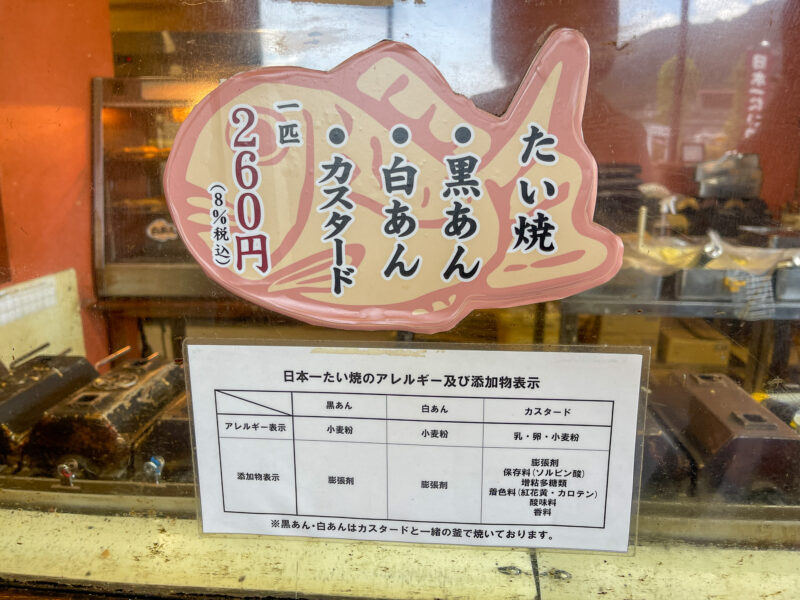 たい焼
●黒あん
●白あん
●カスタード
一匹
260円
(8%税込)
日本一たい焼のアレルギー及び添加物表示
黒あん 白あん カスタード
アレルギー表示 小麦粉 小麦粉 乳・卵・小麦粉
添加物表示 膨張剤 膨張剤 膨張剤
保存料(ソルビン酸)
増粘多糖類
着色料(紅花黄・カロテン)
酸味料
香料
※黒あん・白あんはカスタードと一緒の釜で焼いております。